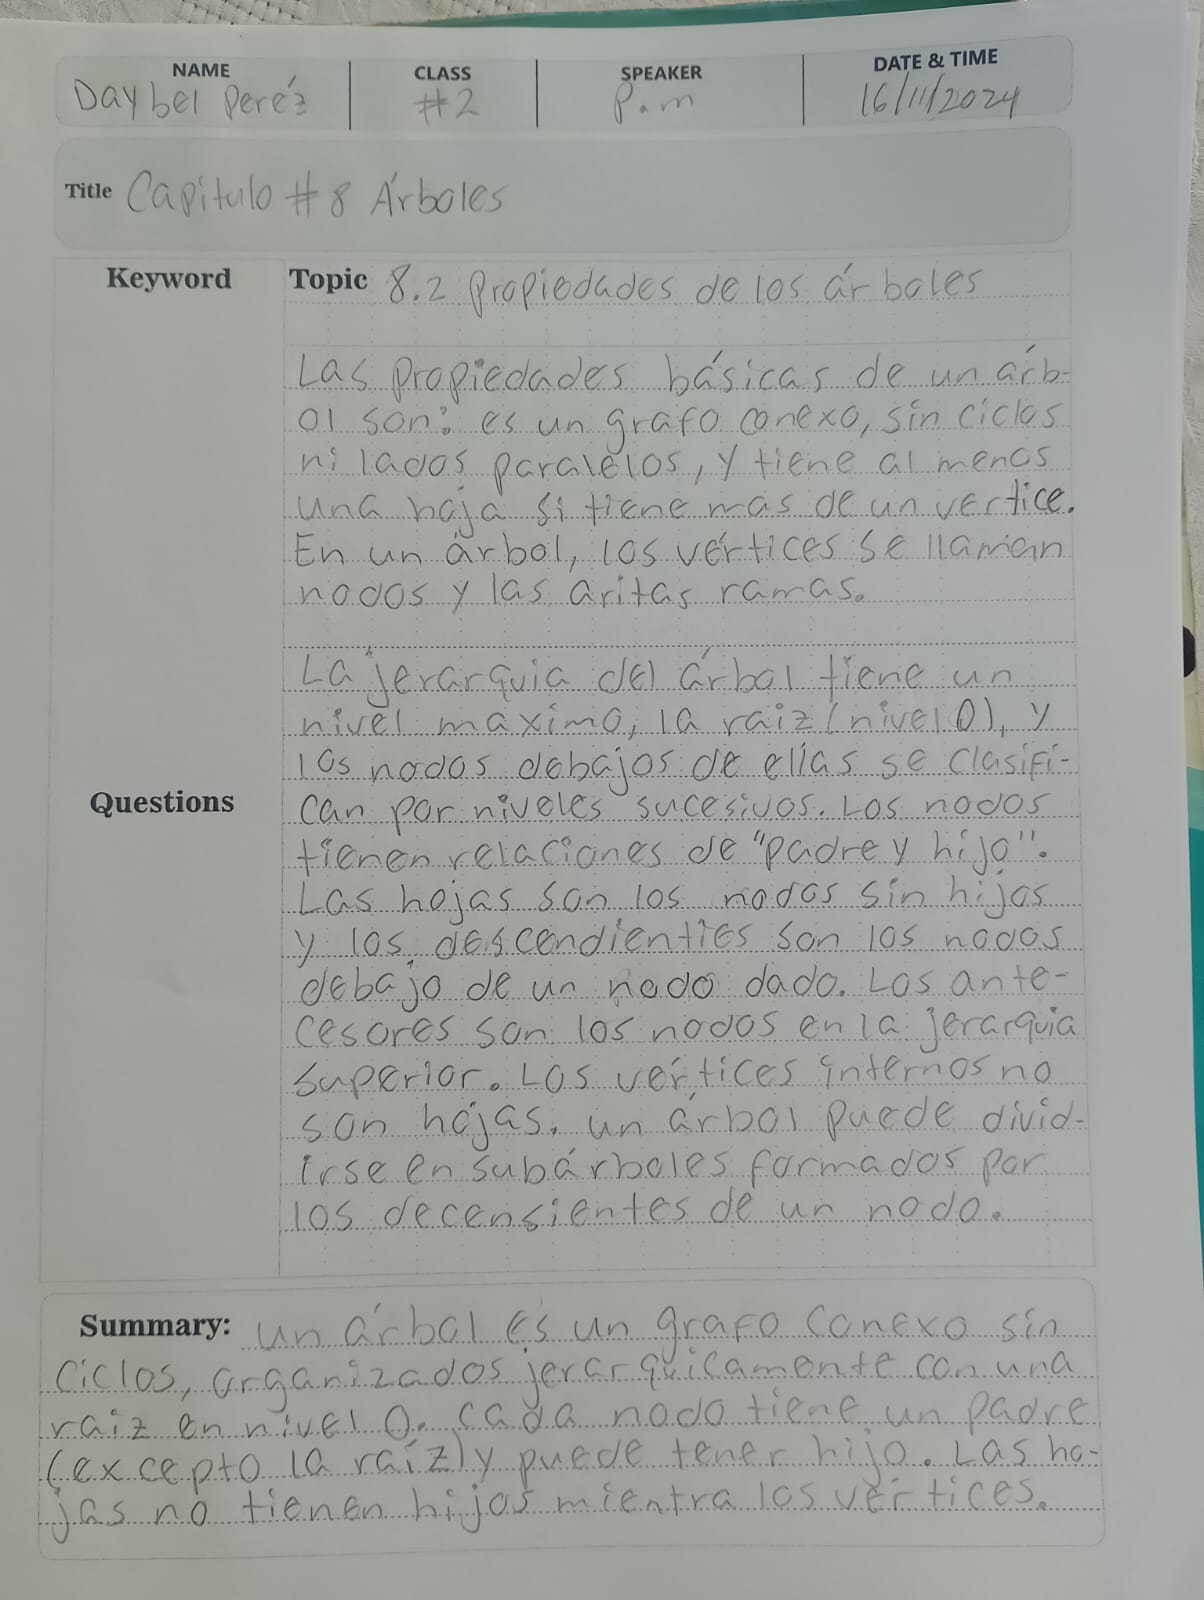 NAME CLASS SPEAKER DATE & TIME
Daybel Peréz #2 P.m 16/11/2024
Title Capítulo #8 Árboles
Keyword Topic 8.2 Propiedades de los árboles
Las propiedades básicas de un árb-
ol son: es un grafo conexo, sin ciclos
ni lados paralelos, y tiene al menos
una hoja si tiene mas de un vertice.
En un árbol, los vértices se llaman
nodos y las aritas ramas.
La jerarquia del árbol tiene un
nivel maximo, la raiz (nivel 0), y
los nodos debajos de ellas se clasifi-
Questions
can por niveles sucesivos. Los nodos
tienen relaciones de "padre y hijo".
Las hojas son los nodos sin hijos
y los descendienties son los nodos
debajo de un nodo dado. Los ante-
cesores son los nodos en la jerarquia
superior. Los vértices internos no
son hojas. un árbol puede divid-
irse en subárboles formados por
los decensientes de un nodo.
Summary: un árbol es un grafo conexo sin
ciclos, organizados jerarquicamente con una
raiz en nivel 0. cada nodo tiene un padre
(excepto la raíz) y puede tener hijo. Las ho-
jas no tienen hijos mientra los vértices.